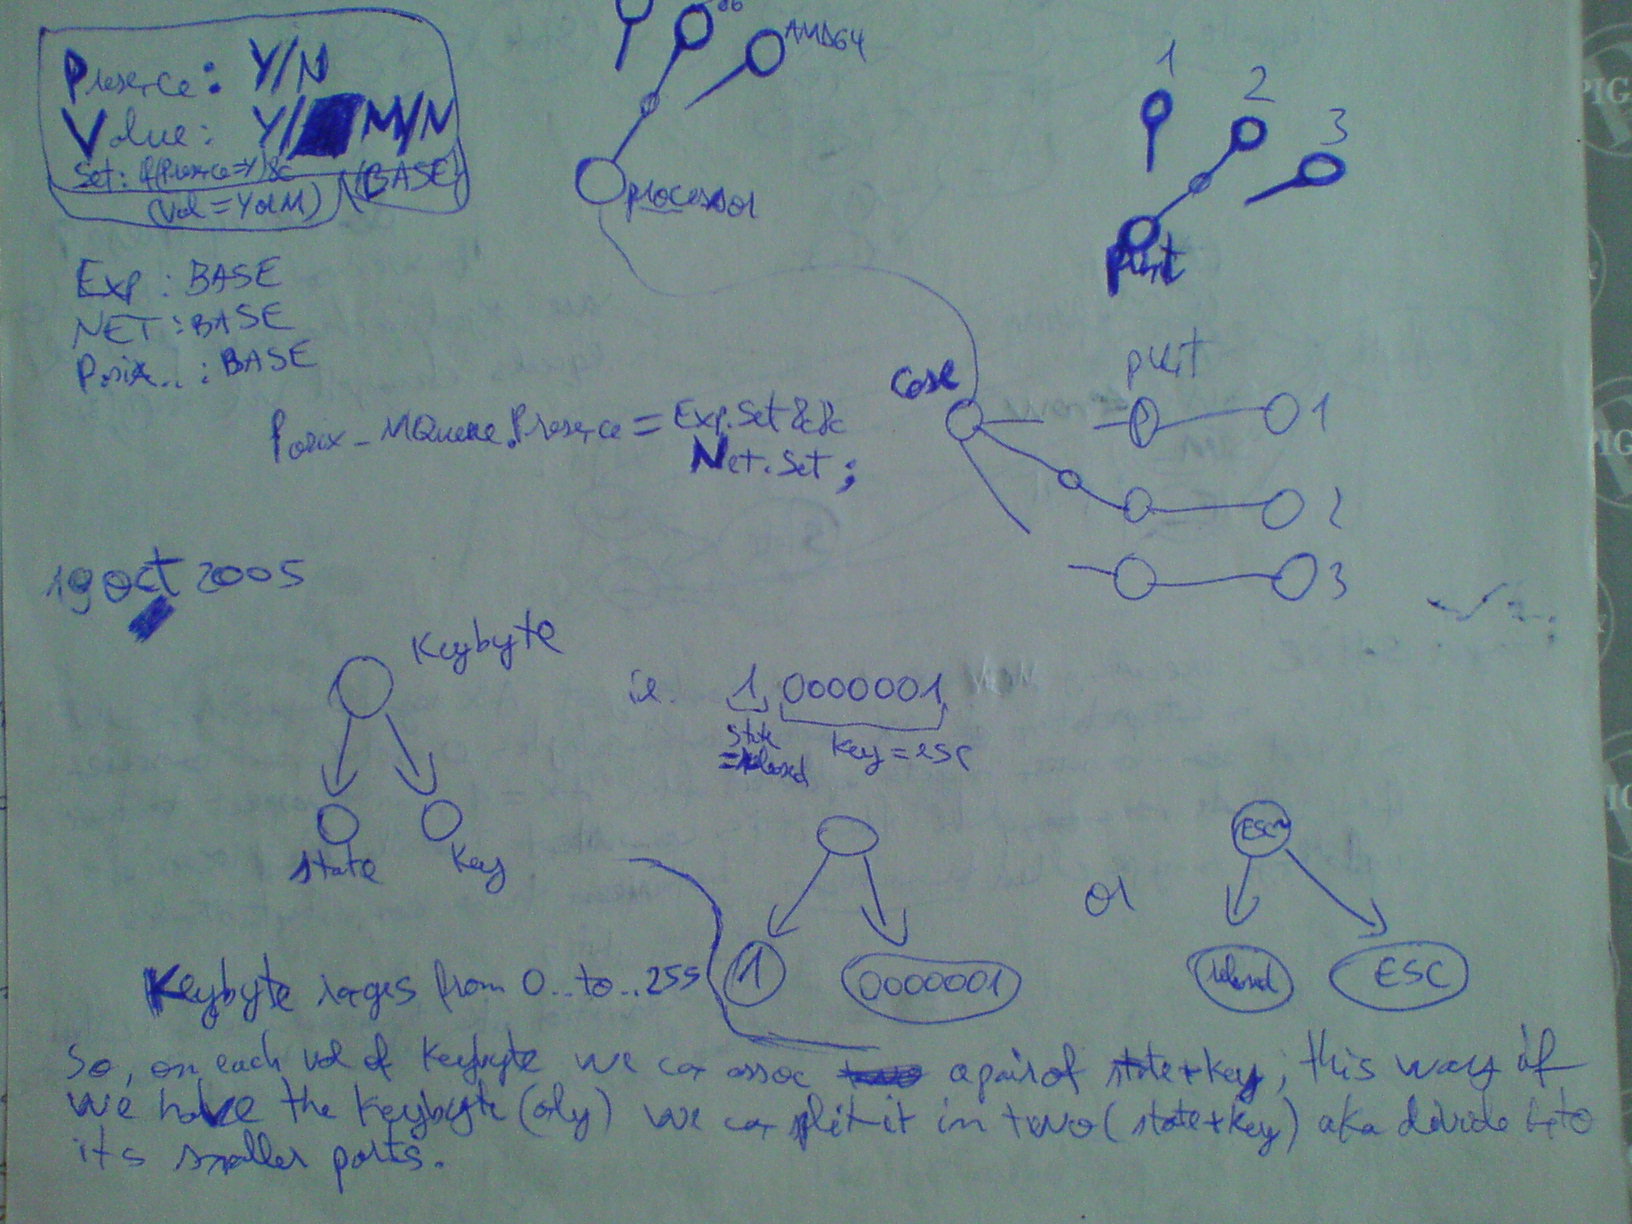 Presence: Y/N
Value: Y/ M/N
Set: if(Presence=Y)&&
(Val=Y or M)
(BASE)
Exp: BASE
NET: BASE
Posix..: BASE
86
AMD64
processor
1
2
3
print
Posix_MQueue.Presence = Exp.Set &&
Net.Set;
Case
print
1
2
3
19 oct 2005
Keybyte
state
key
ie. 1 0000001
state
=released
key = esc
1
0000001
or
ESC~
released
ESC
Keybyte ranges from 0..to..255
So, on each val of keybyte we can assoc a pair of state+key; this way if
we have the keybyte (only) we can split it in two (state+key) aka divide into
its smaller parts.
PIG
PIG